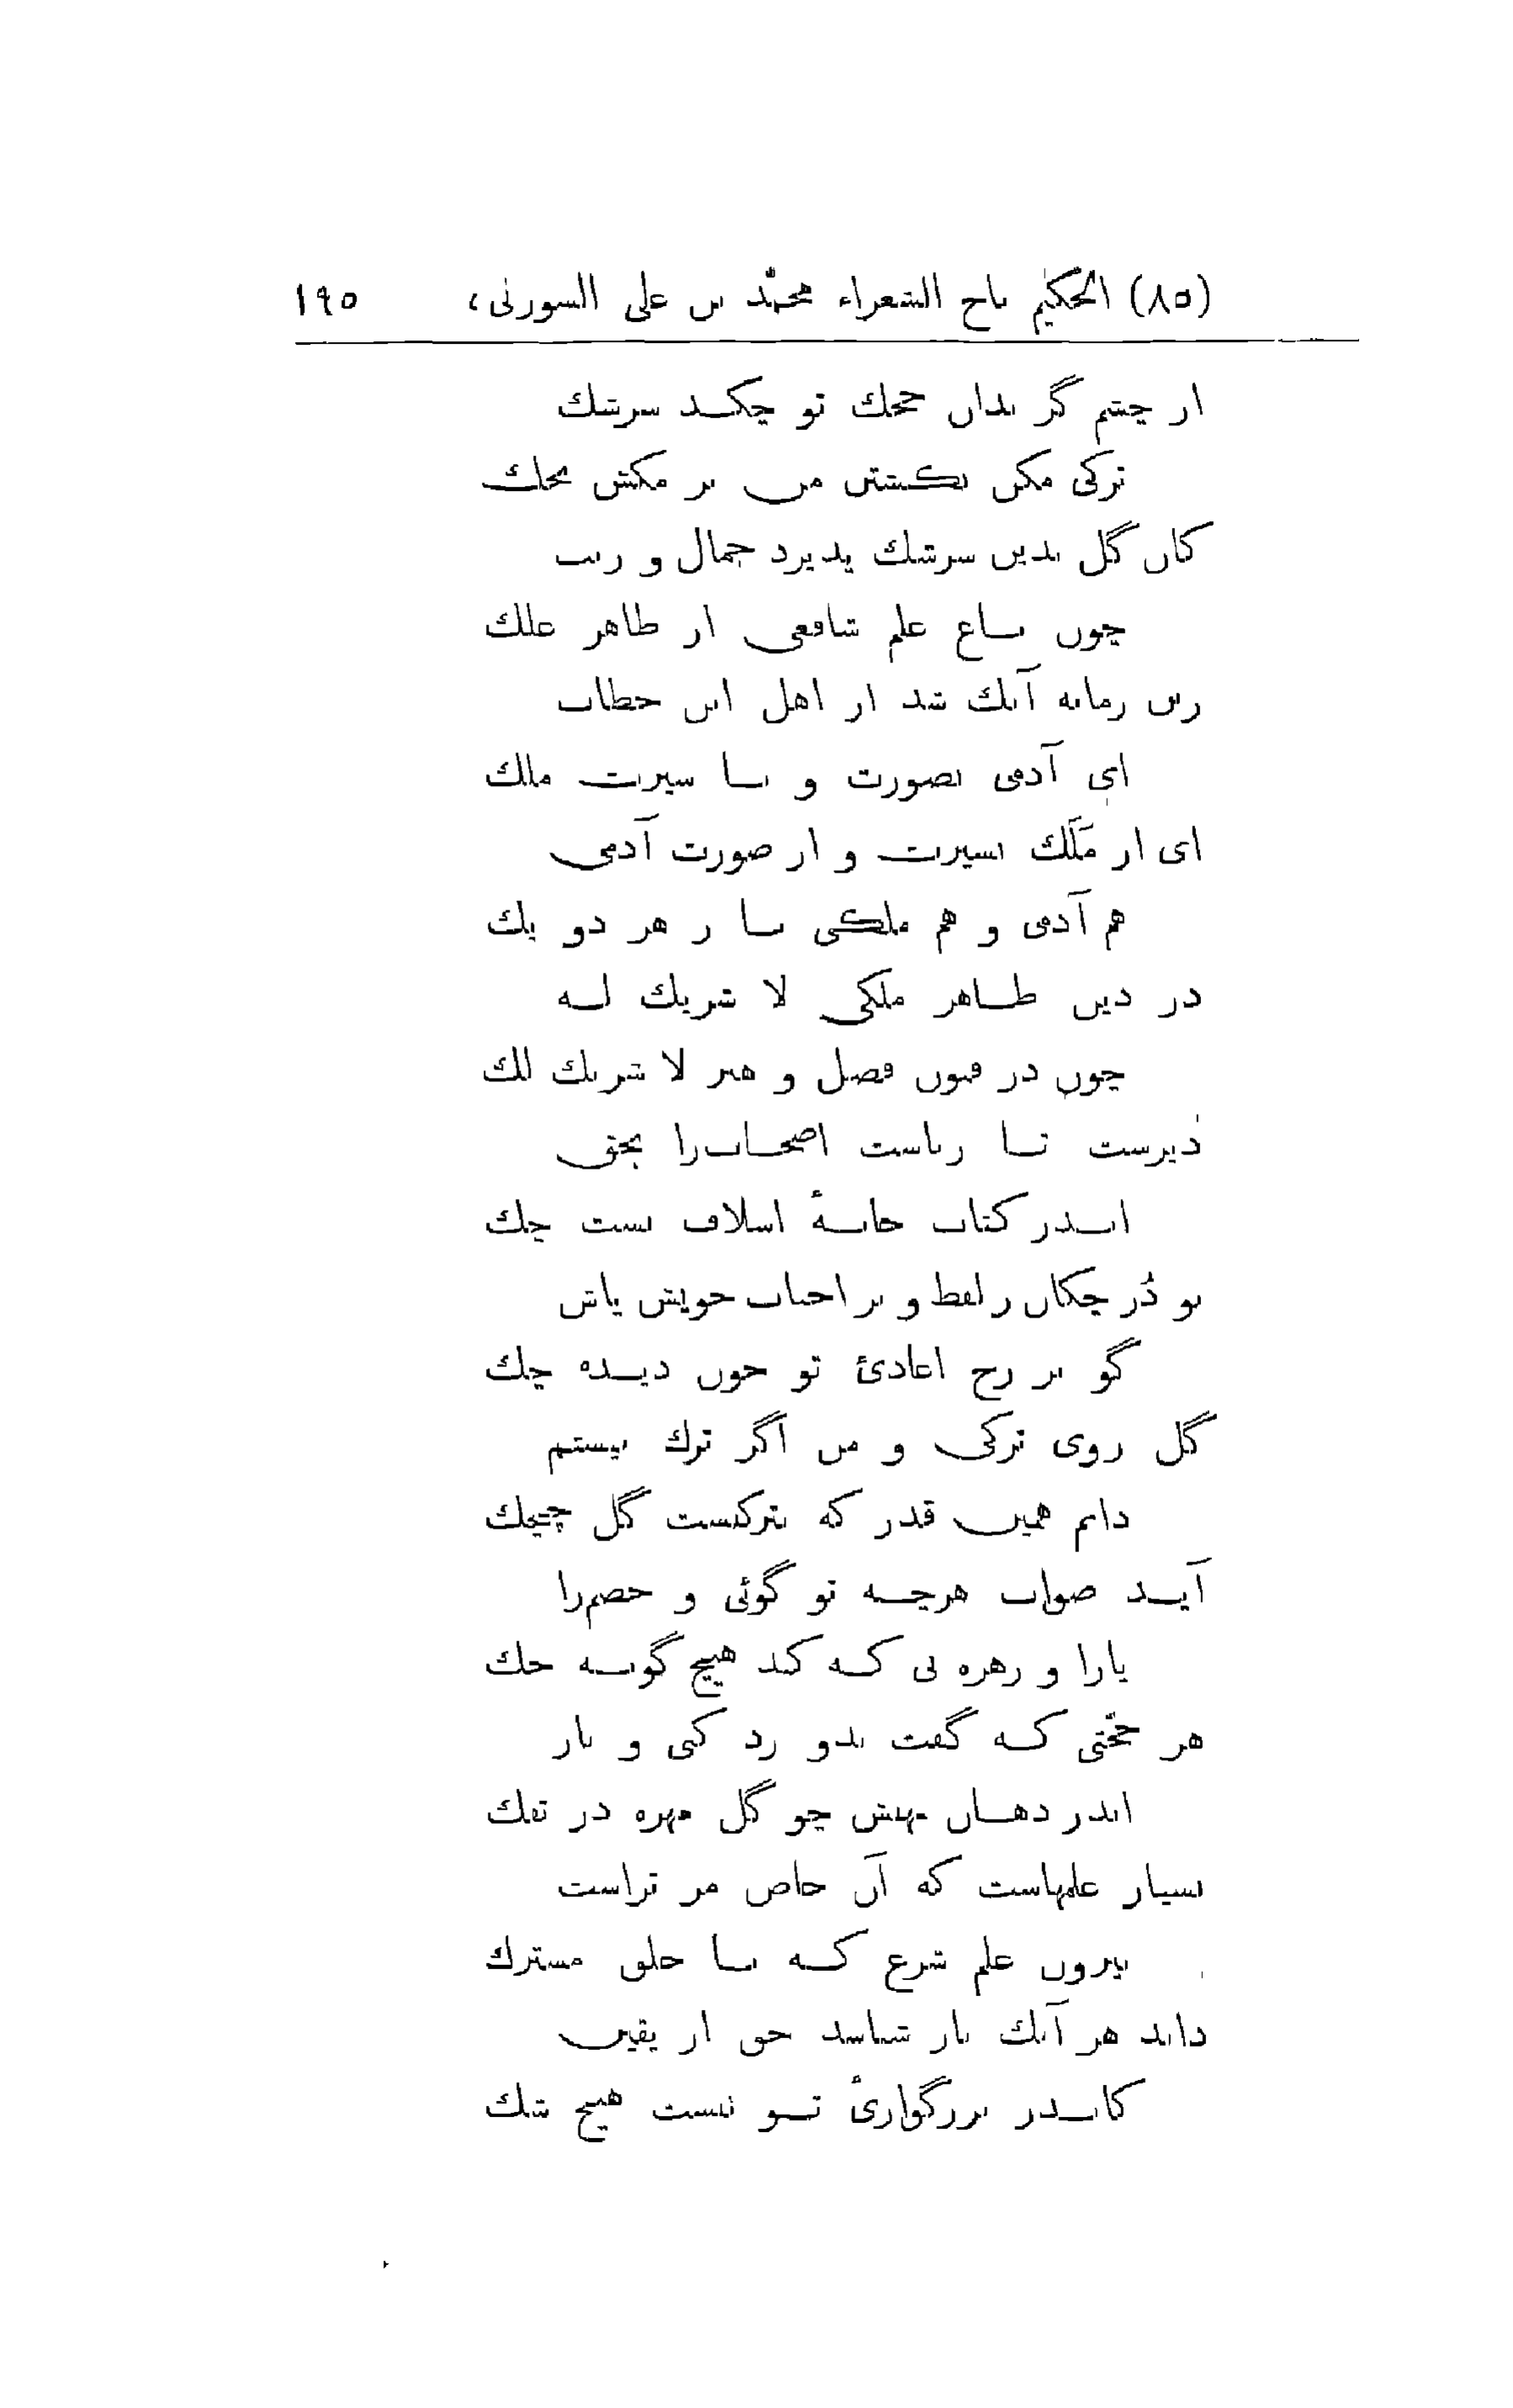 (٨٥) الحكيم تاج الشعراء محمّد بن على السوزنى، ١٩٥
از چشم گر بدان خجك تو چكد سرشك
تركى مكن بكشتن من بر مكش نجك
كان گل بدين سرشك پذيرد جمال و زيب
چون باغ علم شافعى از طاهر علك
زين زمانه آنك شد از اهل اين خطاب
اى آدمى بصورت و با سيرت ملك
اى از مَلَك بسيرت و از صورت آدمى
هم آدمى و هم ملكى با ز هر دو يك
در دين طاهر ملكى لا شريك له
چون در فنون فضل و هنر لا شريك لك
ديرست تا رياست اصحاب را بحق
اندر كتاب خانهٔ اسلاف تست چك
تو دُر چكان ز لفظ و بر احباب خويش پاش
گو بر رخ اعادئ تو خون ديده چك
گل روى تركى و من اگر ترك نيستم
دانم همين قدر كه بتركيست گل چيچك
آيد صواب هرچه تو گوئى و خصم را
يارا و زهره نى كه كند هيچ گونه حك
هر حجّتى كه گفت بدو رد كنى و باز
اندر دهان نهيش چو گل مهره در تفك
بسيار علمهاست كه آن خاص مر تراست
بيرون علم شرع كه با خلق مشترك
داند هر آنك باز شناسد حق از يقين
كاندر بزرگوارئ تو نيست هيچ شك